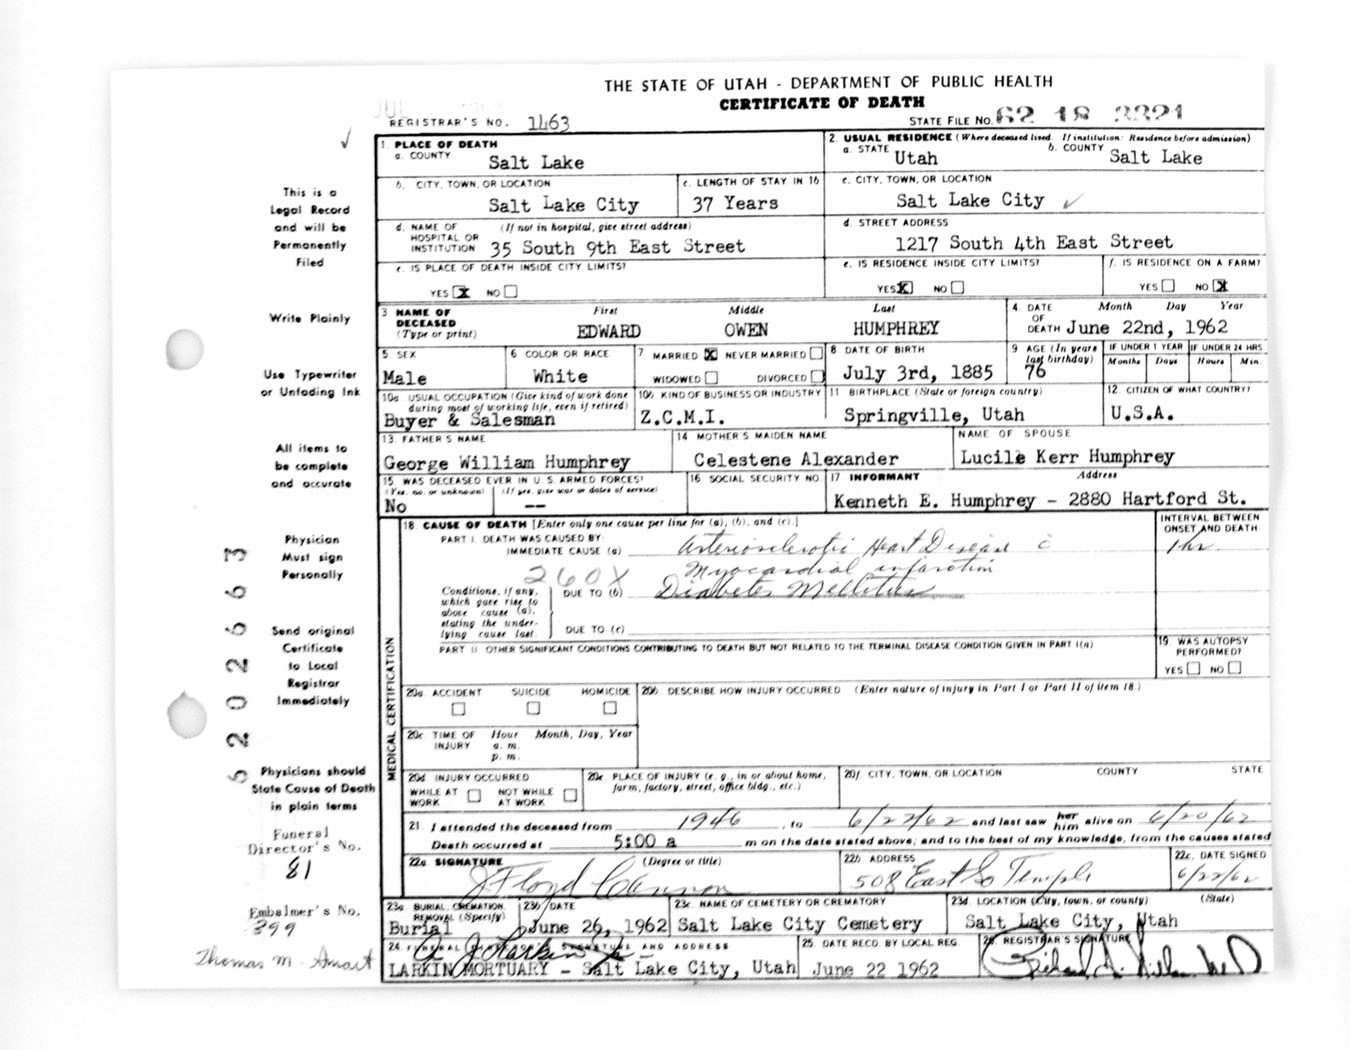 THE STATE OF UTAH - DEPARTMENT OF PUBLIC HEALTH
CERTIFICATE OF DEATH
REGISTRAR'S NO. 1463
STATE FILE NO. 62 18 2221
This is a
Legal Record
and will be
Permanently
Filed
Write Plainly
Use Typewriter
or Unfading Ink
All items to
be complete
and accurate
Physician
Must sign
Personally
Send original
Certificate
to Local
Registrar
Immediately
Physicians should
State Cause of Death
in plain terms
Funeral
Director's No.
81
Embalmer's No.
399
Thomas M.
52025663
1. PLACE OF DEATH
a. COUNTY Salt Lake
2. USUAL RESIDENCE (Where deceased lived. If institution: Residence before admission)
a. STATE Utah b. COUNTY Salt Lake
b. CITY, TOWN, OR LOCATION Salt Lake City
c. LENGTH OF STAY IN 1b 37 Years
c. CITY, TOWN, OR LOCATION Salt Lake City
d. NAME OF HOSPITAL OR INSTITUTION (If not in hospital, give street address) 35 South 9th East Street
d. STREET ADDRESS 1217 South 4th East Street
e. IS PLACE OF DEATH INSIDE CITY LIMITS?
YES X NO
e. IS RESIDENCE INSIDE CITY LIMITS?
YES X NO
f. IS RESIDENCE ON A FARM?
YES NO X
3 NAME OF DECEASED (Type or print) First Middle Last
EDWARD OWEN HUMPHREY
4. DATE OF DEATH Month Day Year
June 22nd, 1962
5 SEX Male
6 COLOR OR RACE White
7 MARRIED X NEVER MARRIED
WIDOWED DIVORCED
8 DATE OF BIRTH July 3rd, 1885
9 AGE (In years last birthday) 76
IF UNDER 1 YEAR Months Days
IF UNDER 24 HRS Hours Min.
10a USUAL OCCUPATION (Give kind of work done during most of working life, even if retired)
Buyer & Salesman
10b KIND OF BUSINESS OR INDUSTRY Z.C.M.I.
11 BIRTHPLACE (State or foreign country) Springville, Utah
12 CITIZEN OF WHAT COUNTRY? U.S.A.
13. FATHER'S NAME George William Humphrey
14 MOTHER'S MAIDEN NAME Celestene Alexander
NAME OF SPOUSE Lucile Kerr Humphrey
15. WAS DECEASED EVER IN U.S. ARMED FORCES?
(Yes, no, or unknown) (If yes, give war or dates of service)
No --
16 SOCIAL SECURITY NO.
17 INFORMANT Address
Kenneth E. Humphrey - 2880 Hartford St.
18 CAUSE OF DEATH [Enter only one cause per line for (a), (b), and (c).]
INTERVAL BETWEEN ONSET AND DEATH
PART I. DEATH WAS CAUSED BY:
IMMEDIATE CAUSE (a) Arteriosclerotic Heart Disease c 1 hr
Myocardial infarction
260X
Conditions, if any, which gave rise to above cause (a), stating the underlying cause last.
DUE TO (b) Diabetes Mellitus
DUE TO (c)
PART II OTHER SIGNIFICANT CONDITIONS CONTRIBUTING TO DEATH BUT NOT RELATED TO THE TERMINAL DISEASE CONDITION GIVEN IN PART I(a)
19. WAS AUTOPSY PERFORMED?
YES NO
MEDICAL CERTIFICATION
20a ACCIDENT SUICIDE HOMICIDE
20b DESCRIBE HOW INJURY OCCURRED (Enter nature of injury in Part I or Part II of item 18.)
20c TIME OF INJURY Hour Month, Day, Year
a. m.
p. m.
20d INJURY OCCURRED
WHILE AT WORK NOT WHILE AT WORK
20e. PLACE OF INJURY (e. g., in or about home, farm, factory, street, office bldg., etc.)
20f CITY, TOWN, OR LOCATION COUNTY STATE
21 I attended the deceased from 1946, to 6/22/62 and last saw her him alive on 6/20/62
Death occurred at 5:00 a m on the date stated above; and to the best of my knowledge, from the causes stated
22a SIGNATURE (Degree or title)
J Floyd Cannon
22b ADDRESS
508 East So Temple
22c. DATE SIGNED
6/22/62
23a BURIAL, CREMATION, REMOVAL (Specify) Burial
23b DATE June 26, 1962
23c. NAME OF CEMETERY OR CREMATORY Salt Lake City Cemetery
23d. LOCATION (City, town, or county) (State)
Salt Lake City, Utah
24. FUNERAL DIRECTOR'S SIGNATURE AND ADDRESS
LARKIN MORTUARY - Salt Lake City, Utah
25. DATE RECD. BY LOCAL REG. June 22 1962
26. REGISTRAR'S SIGNATURE